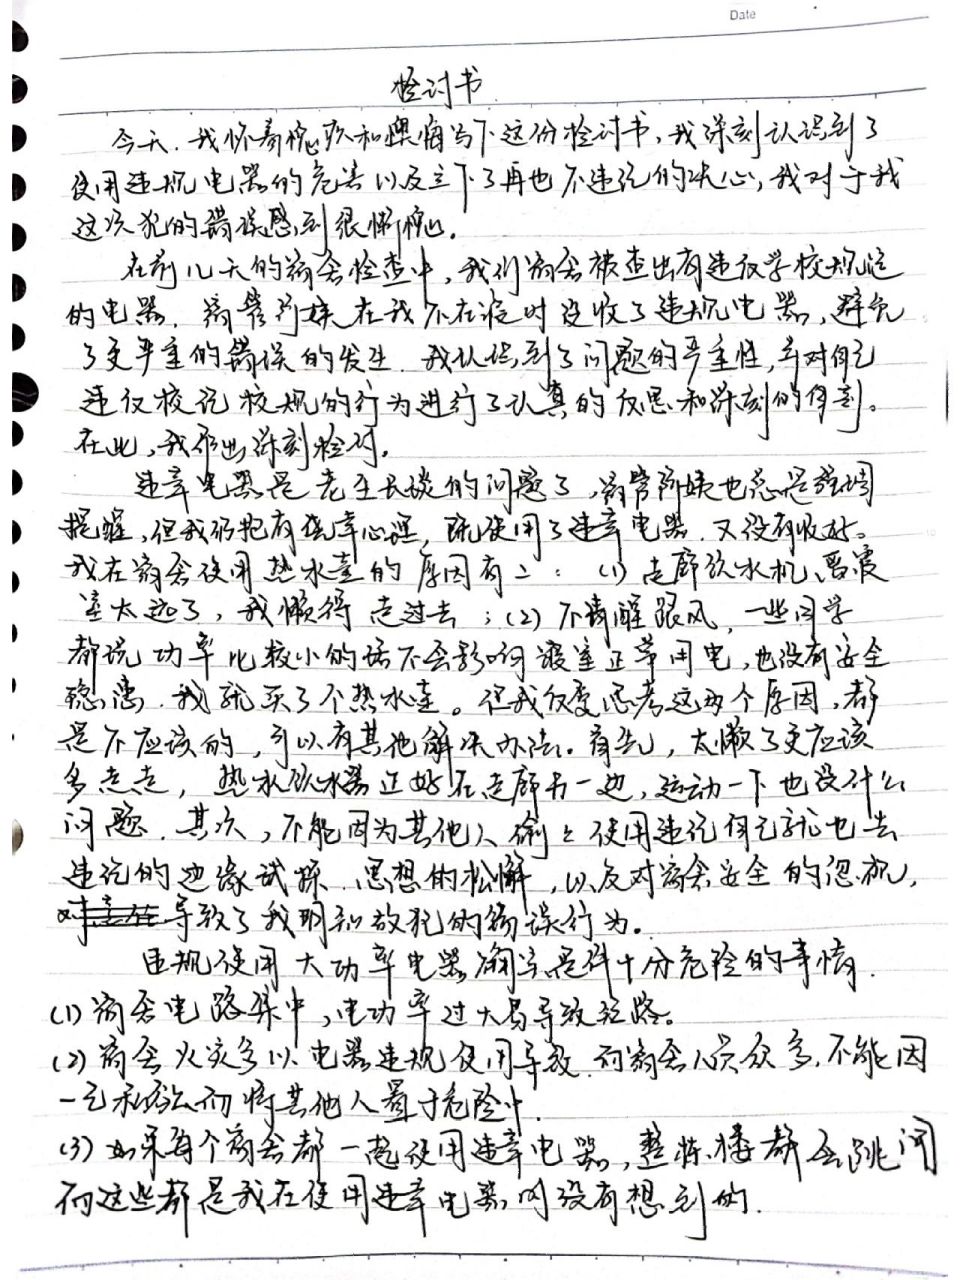 Date
检讨书
今天,我怀着愧疚和懊悔写下这份检讨书,我深刻认识到了
使用违规电器的危害以及立下了再也不违纪的决心,我对于我
这次犯的错误感到很惭愧。
在前几天的宿舍检查中,我们宿舍被查出有违反学校规定
的电器,宿管阿姨在我不在宿时没收了违规电器,避免
了更严重的错误的发生.我认识到了问题的严重性,并对自己
违反校纪校规的行为进行了认真的反思和深刻的
在此,我作出深刻检讨。
违章电器是老生长谈的问题了,宿管阿姨也总是强调
提醒,但我仍抱有侥幸心理,既使用了违章电器.又没有收好。
我在宿舍使用热水壶的原因有二:(1)走廊饮水机离寝
室太远了,我懒得走过去;(2)不清醒跟风,一些同学
都说功率比较小的话不会影响寝室正常用电,也没有安全
隐患.我就买了个热水壶。但我反复思考这两个原因,都
是不应该的,可以有其他解决办法.首先,太懒了更应该
多走走,热水饮水器正好在走廊另一边,运动一下也没什么
问题.其次,不能因为其他人偷偷使用违纪自己就也去
违纪的边缘试探.思想的松懈,以及对宿舍安全的忽视,
导致了我明知故犯的错误行为。
违规使用大功率电器确实是件十分危险的事情.
(1)宿舍电路集中,电功率过大易导致短路。
(2)宿舍火灾多以电器违规使用导致.而宿舍人员众多,不能因
一己私欲而将其他人置于危险中.
(3)如果每个宿舍都一起使用违章电器,整栋楼都会跳闸
而这些都是我在使用违章电器时没有想到的.